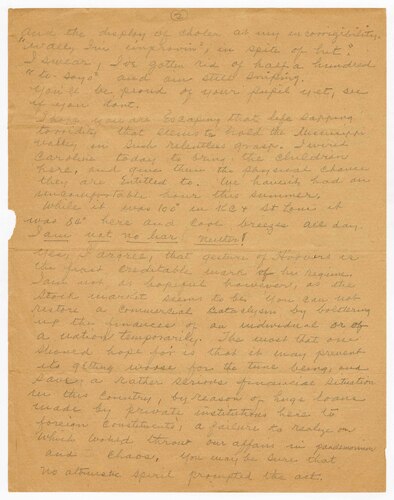 2
and the display of choler at my incorrigibility.
"Wally I'm "emprhovin", in spite of hit".
I swear, I've gotten rid of half a hundred
"to says" and am still swiping.
You'll be proud of your pupil yet, see
if you dont.
I hope you are escaping that life sapping
torridity that seems to hold the Mississippi
Valley in such relentless grasp. I wired
Caroline today to bring the children
here, and give them the physical chance
they are entitled to. We havent had an
uncomfortable hour this summer.
While it was 100° in K.C. & St Louis it
was 84° here and cool breezes all day.
I am not no liar neither!
Yes, I agree, that gesture of Hoovers is
the first creditable mark of his regime.
I am not as hopeful however, as the
Stock market seems to be. You can not
restore a commercial cataclysm by bolstering
up the finances of an individual or of
a nation temporarily. The most that one
should hope for is that it may prevent
its getting worse for the time being, and
save a rather serious financial situation
in this country, by reason of huge loans
made by private institutions here to
foreign constituents, a failure to realize on
which would throw our affairs in pandemonium
and chaos. You may be sure that
no altruistic spirit prompted the act.